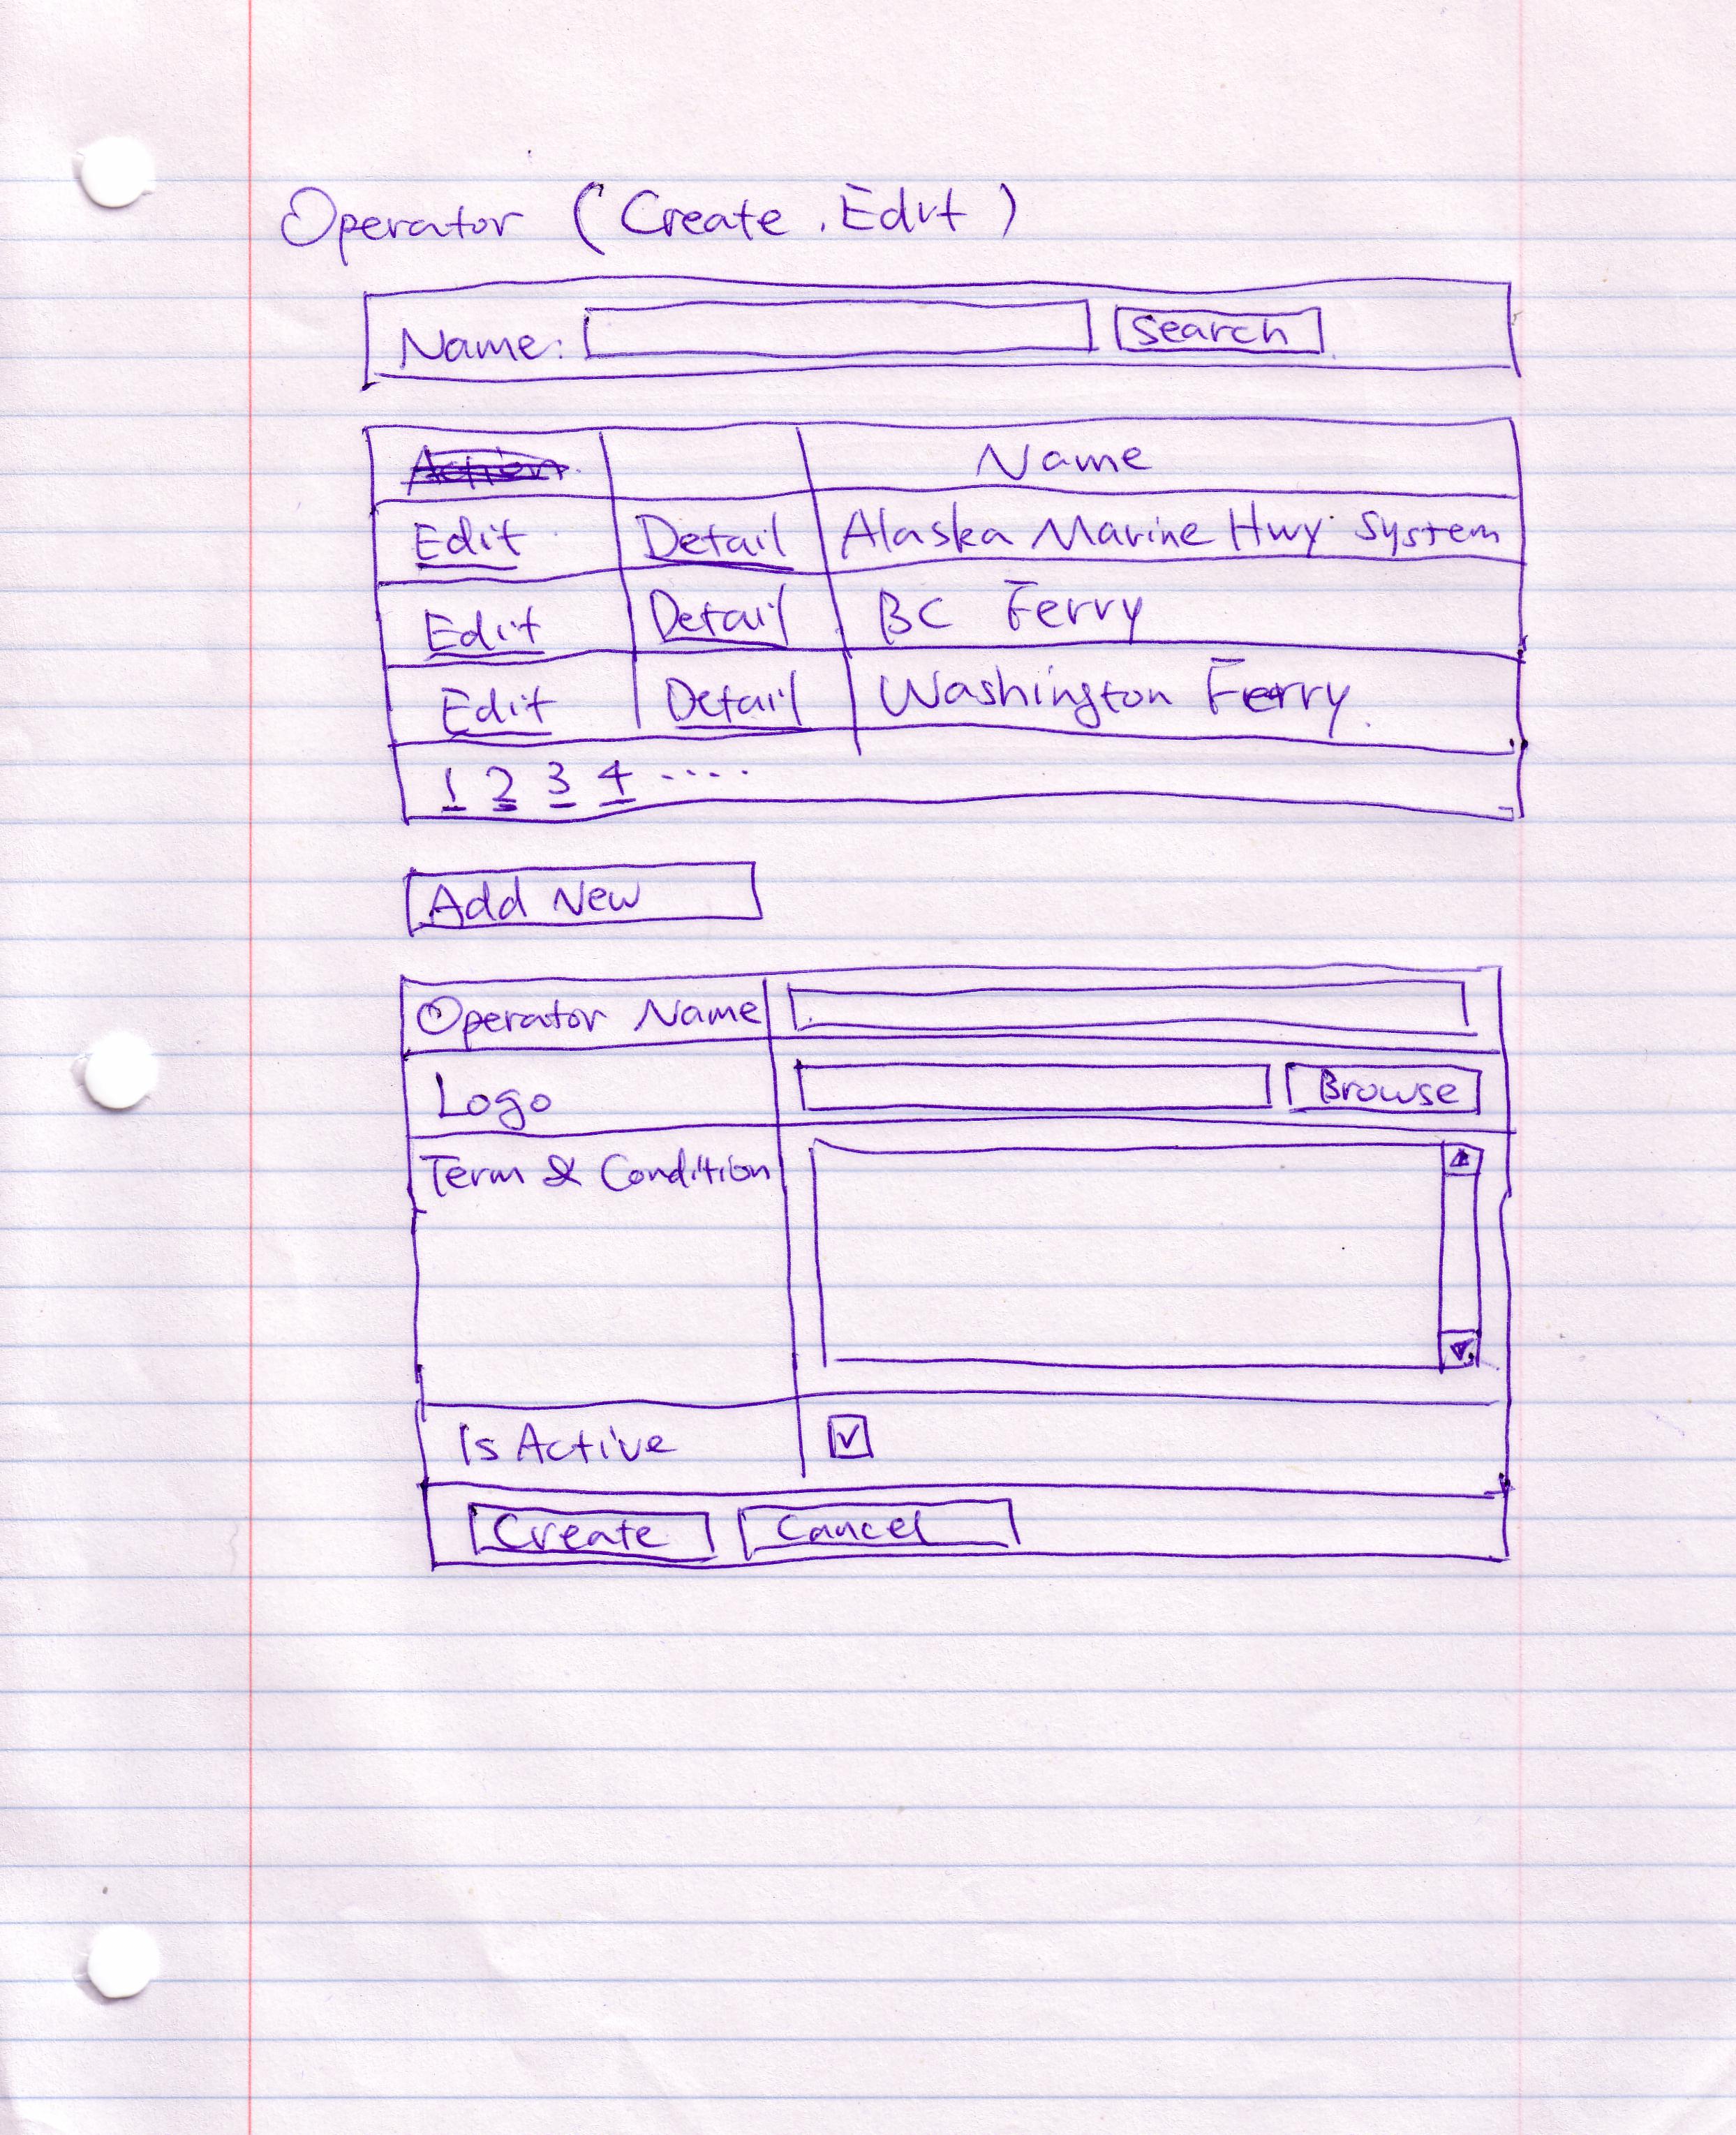 Operator (Create, Edit)
Name: Search
Action Name
Edit Detail Alaska Marine Hwy System
Edit Detail BC Ferry
Edit Detail Washington Ferry
1 2 3 4 ....
Add New
Operator Name
Logo Browse
Term & Condition
Is Active
Create Cancel